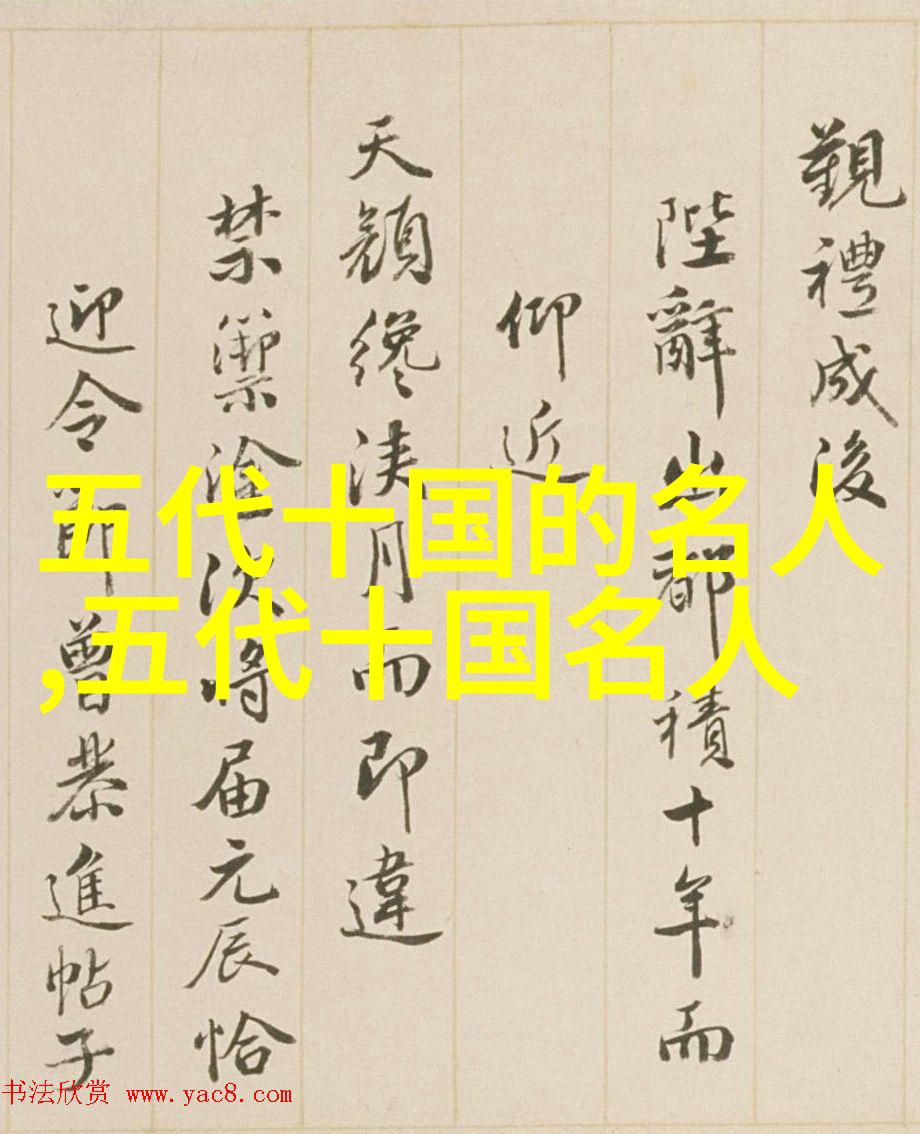 覲禮成後
陛辭出都積十年而
仰近
天顏纔浹月而即違
禁籞涂次將届元辰恰
迎令節曾恭進帖子
五代十国的名人
,五代十国名人
书法欣赏 www.yac8.com